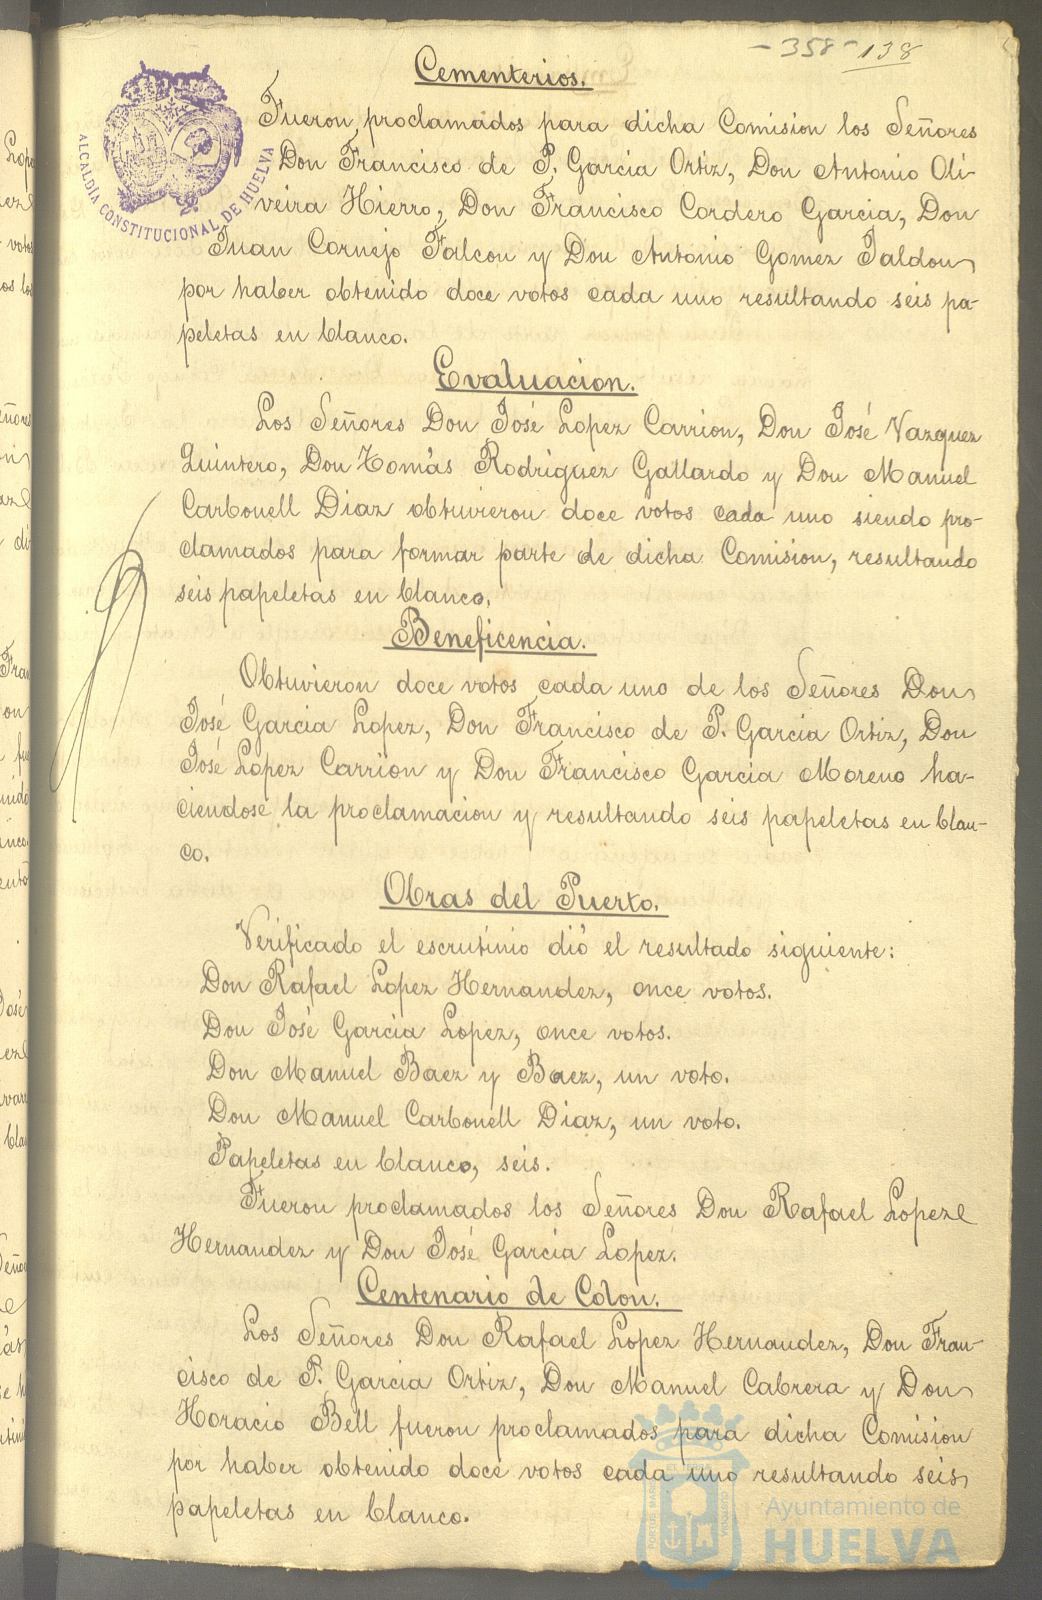 -358- 138
Cementerios.
Fueron proclamados para dicha Comision los Señores
Don Francisco de P. Garcia Ortiz, Don Antonio Oli-
veira Hierro, Don Francisco Cordero Garcia, Don
Juan Cornejo Falcon y Don Antonio Gomez Jaldon
por haber obtenido doce votos cada uno resultando seis pa-
peletas en blanco.
ALCALDÍA CONSTITUCIONAL DE HUELVA
Evaluacion.
Los Señores Don José Lopez Carrion, Don José Vazquez
Quintero, Don Tomás Rodriguez Gallardo y Don Manuel
Carbonell Diaz obtuvieron doce votos cada uno siendo pro-
clamados para formar parte de dicha Comision, resultando
seis papeletas en blanco.
Beneficencia.
Obtuvieron doce votos cada uno de los Señores Don
José Garcia Lopez, Don Francisco de P. Garcia Ortiz, Don
José Lopez Carrion y Don Francisco Garcia Moreno ha-
ciendose la proclamacion y resultando seis papeletas en blan-
co.
Obras del Puerto.
Verificado el escrutinio dió el resultado siguiente:
Don Rafael Lopez Hernandez, once votos.
Don José Garcia Lopez, once votos.
Don Manuel Baez y Baez, un voto.
Don Manuel Carbonell Diaz, un voto.
Papeletas en blanco, seis.
Fueron proclamados los Señores Don Rafael Lopez
Hernandez y Don José Garcia Lopez.
Centenario de Colon.
Los Señores Don Rafael Lopez Hernandez, Don Fran-
cisco de P. Garcia Ortiz, Don Manuel Cabrera y Don
Horacio Bell fueron proclamados para dicha Comision
por haber obtenido doce votos cada uno resultando seis
papeletas en blanco.
Ayuntamiento de
HUELVA